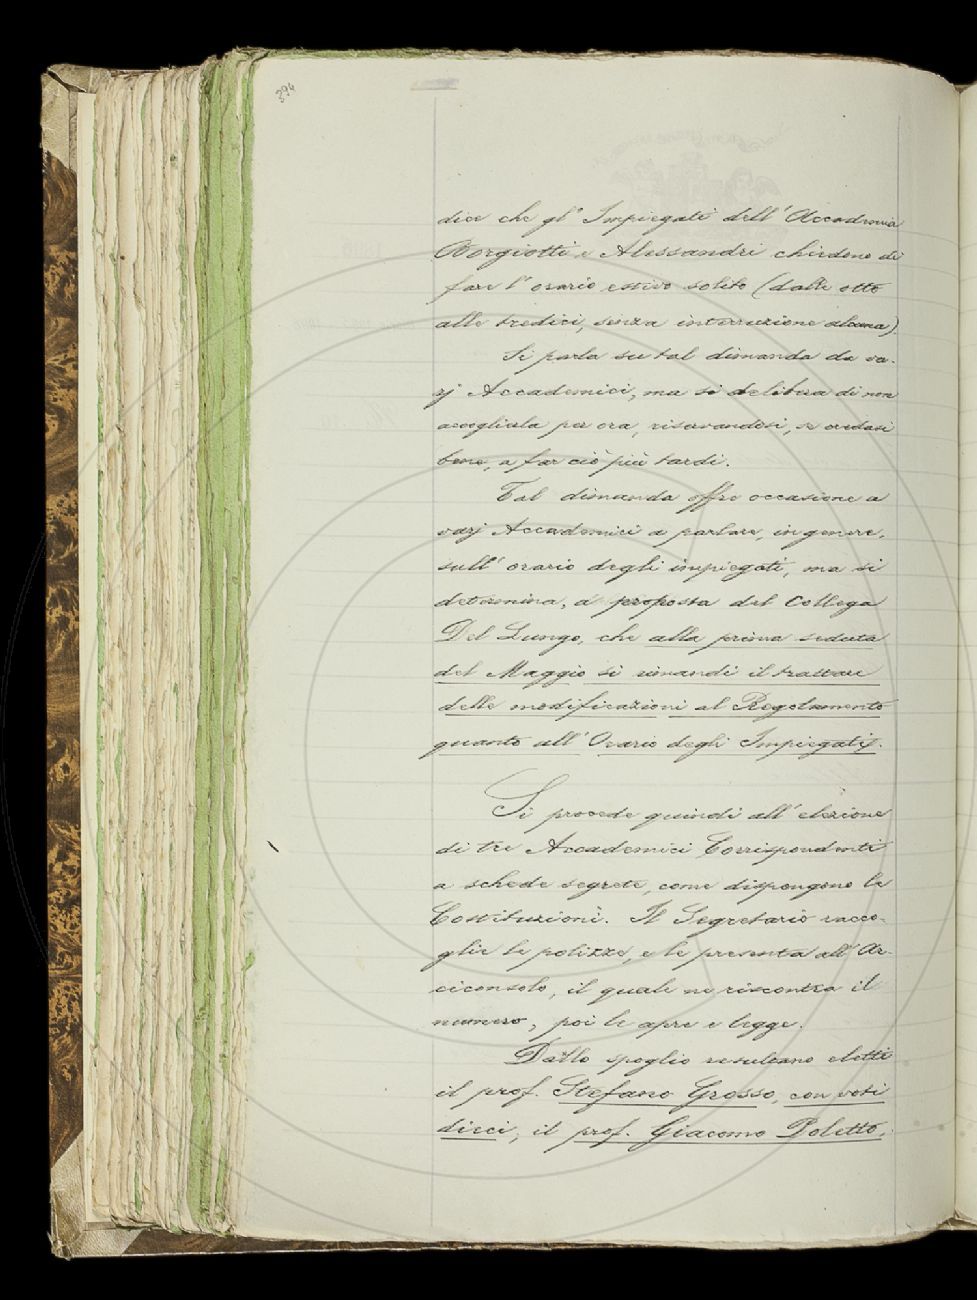 394
dice che gl' Impiegati dell' Accademia
Borgiotti e Alessandri chiedono di
fare l' orario estivo solito (dalle otto
alle tredici, senza interruzione alcuna)
Si parla su tal dimanda da va-
rj Accademici, ma si delibera di non
accoglierla per ora, riservandosi, se credasi
bene, a far ciò più tardi.
Tal dimanda offre occasione a
varj Accademici a parlare, in genere,
sull' orario degli impiegati, ma si
determina, a proposta del Collega
Del Lungo, che alla prima seduta
del Maggio si rimandi il trattare
delle modificazioni al Regolamento
quanto all' Orario degli Impiegati.
Si procede quindi all' elezione
di tre Accademici Corrispondenti
a schede segrete, come dispongono le
Costituzioni. Il Segretario racco-
glie le polizze, e le presenta all' Ar-
ciconsolo, il quale ne riscontra il
numero, poi le apre e legge.
Dallo spoglio resultano eletti
il prof. Stefano Grosso, con voti
dieci, il prof. Giacomo Poletto,